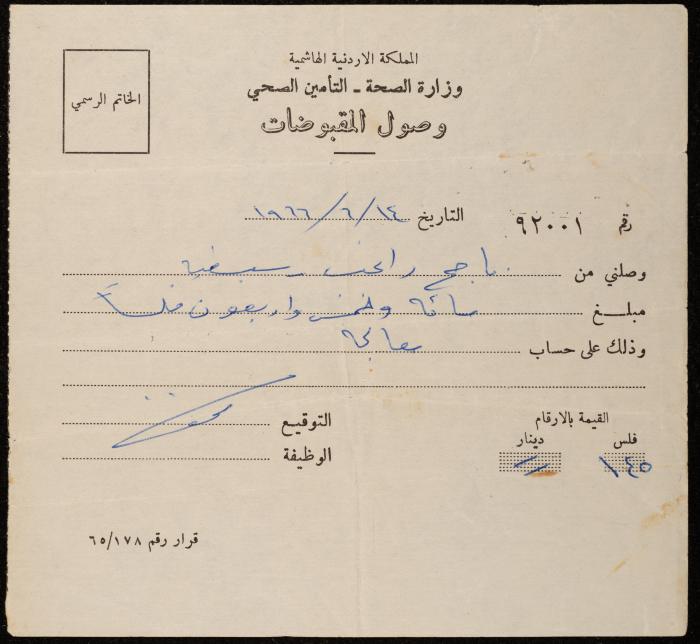 المملكة الاردنية الهاشمية
وزارة الصحة - التأمين الصحي
الخاتم الرسمي
وصول المقبوضات
رقم ٩٢٠٠١ التاريخ ١٤/٦/١٩٦٦
وصلني من ناجح راغب
مبلغ مائة وخمس واربعون فلساً
وذلك على حساب معالجة
القيمة بالارقام
فلس دينار
١٤٥ //
التوقيع
الوظيفة
قرار رقم ٦٥/١٧٨